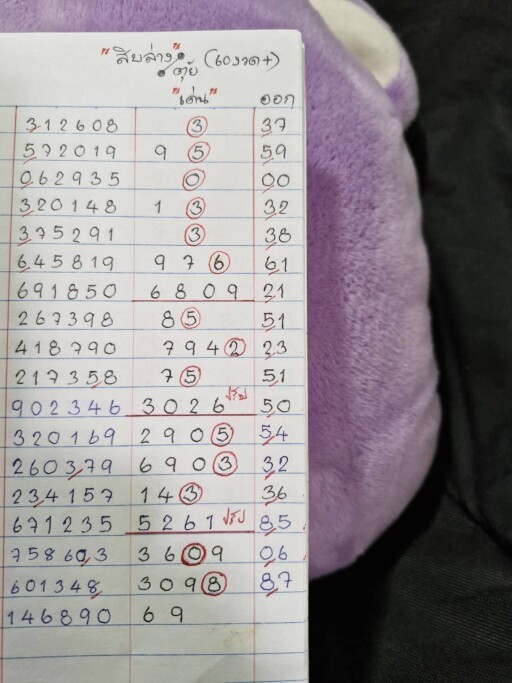 "สิบล่าง" (60งวด+)
ตุ้ย
"เด่น" ออก
312608 3 37
572019 9 5 59
062935 0 00
320148 1 3 32
375291 3 38
645819 9 7 6 61
691850 6 8 0 9 21
267398 8 5 51
418790 7 9 4 2 23
217358 7 5 51
902346 3 0 2 6 ปรับ 50
320169 2 9 0 5 54
260379 6 9 0 3 32
234157 1 4 3 36
671235 5 2 6 1 ปรับ 85
758603 3 6 0 9 06
601348 3 0 9 8 87
146890 6 9